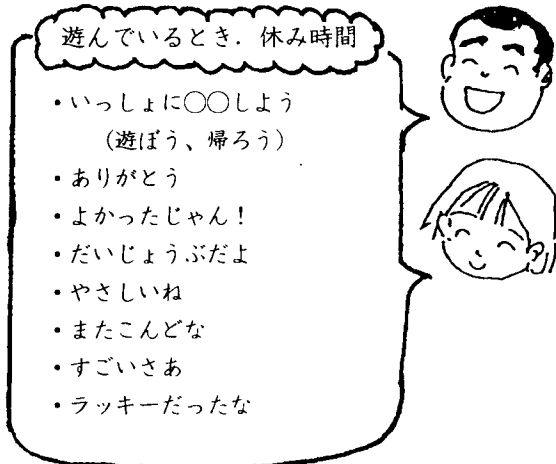 遊んでいるとき．休み時間
・いっしょに○○しよう
（遊ぼう、帰ろう）
・ありがとう
・よかったじゃん！
・だいじょうぶだよ
・やさしいね
・またこんどな
・すごいさあ
・ラッキーだったな